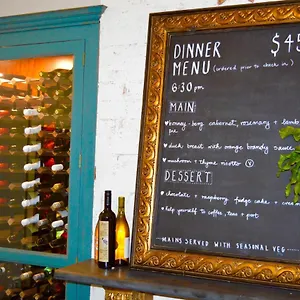 DINNER $45
MENU (ordered prior to check in)
6:30pm
MAIN
♥ bonney-borg cabernet, rosemary + lamb
pie
♥ duck breast with orange brandy sauce
♥ mushroom + thyme risotto Ⓥ
DESSERT
♥ chocolate + raspberry fudge cake + cream
♥ help yourself to coffee, teas + port
MAINS SERVED WITH SEASONAL VEG